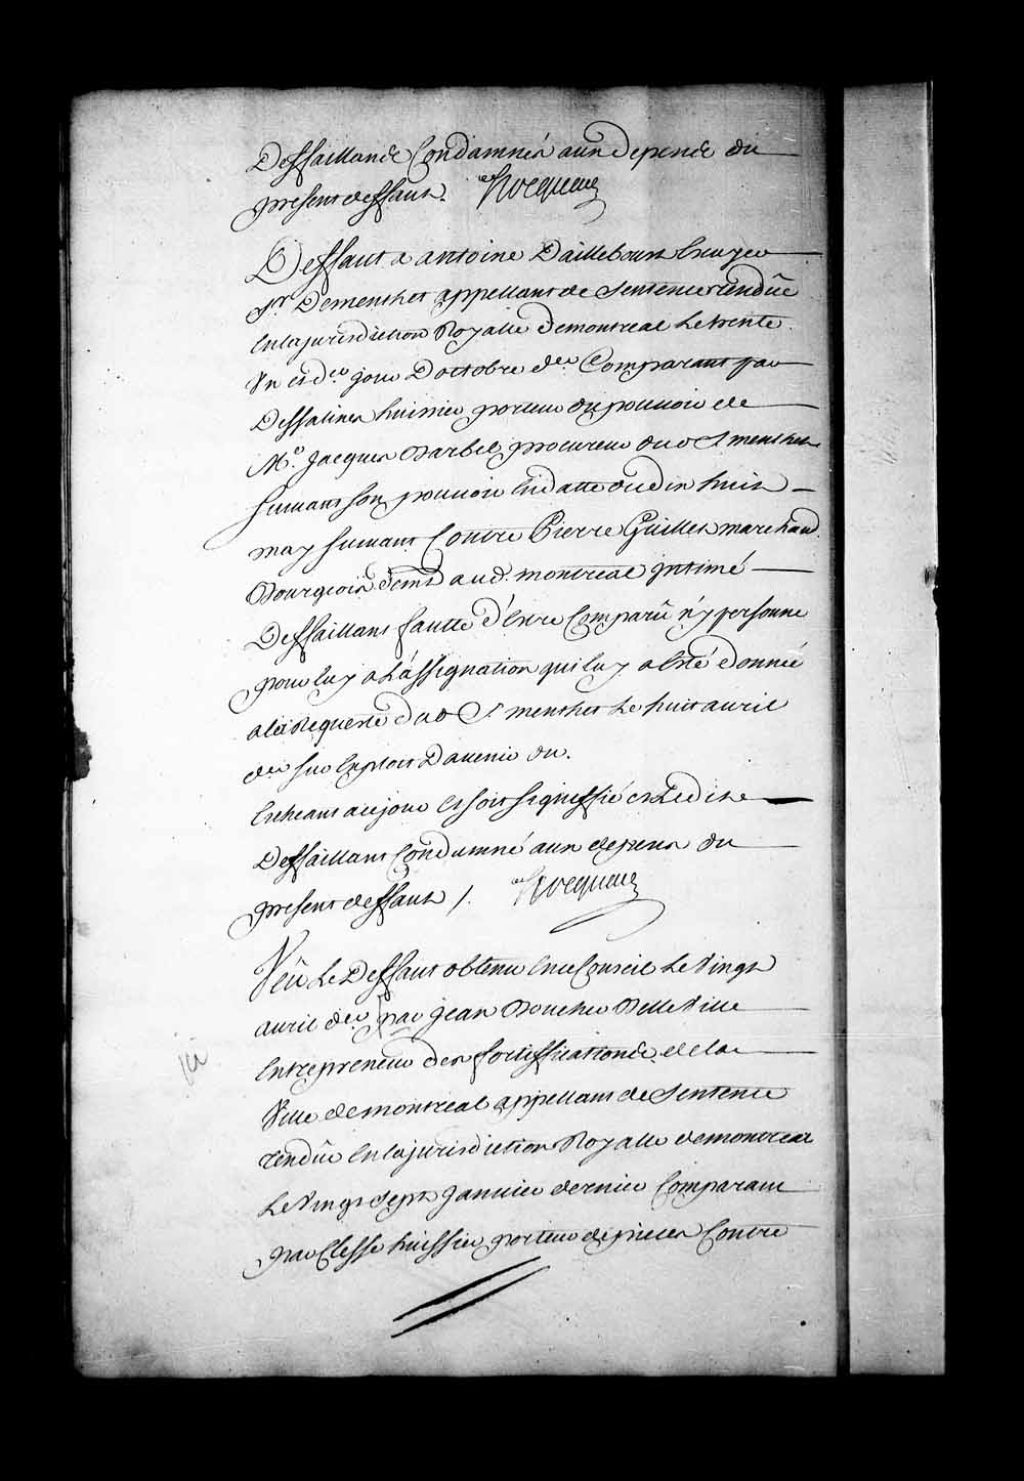 Deffaillands Condamnés aux Depends du
present deffaut. Hocquart
Deffaut a antoine Dailleboust Ecuyer
Sr. Dementhet appellant de Sentence rendüe
En la jurisdiction Royalle demontreal Le trente
Un et der jour D'octobre der Comparant par
Dessalines huissier porteur du pouvoir de
Me. Jacques Barbel procureur dud S. menthet
Suivant son pouvoir En datte du dix huit
may suivant Contre Pierre Guillet marchand
Bourgeois demt aud. montreal Intimé
Deffaillant fautte d'Estre Comparû n'y personne
pour luy a L'assignation qui luy a Esté donnée
a la Requeste dud S. menthet Le huit avril
der sur Exploit D'avenir du.
Echeant ce jour Et soit signiffié et Ledit
Deffaillant Condamné aux depens du
present deffaut /. Hocquart
Veû Le Deffaut obtenu En ce Conseil Le Vingt
avril der par Jean Boucher Belleville
Entrepreneur des fortiffications de la
Ville de montréal appellant de Sentence
rendüe En la jurisdiction Royalle de montreal
Le Vingt Sept Janvier dernier Comparant
par Clesse huissier porteur de pieces Contre